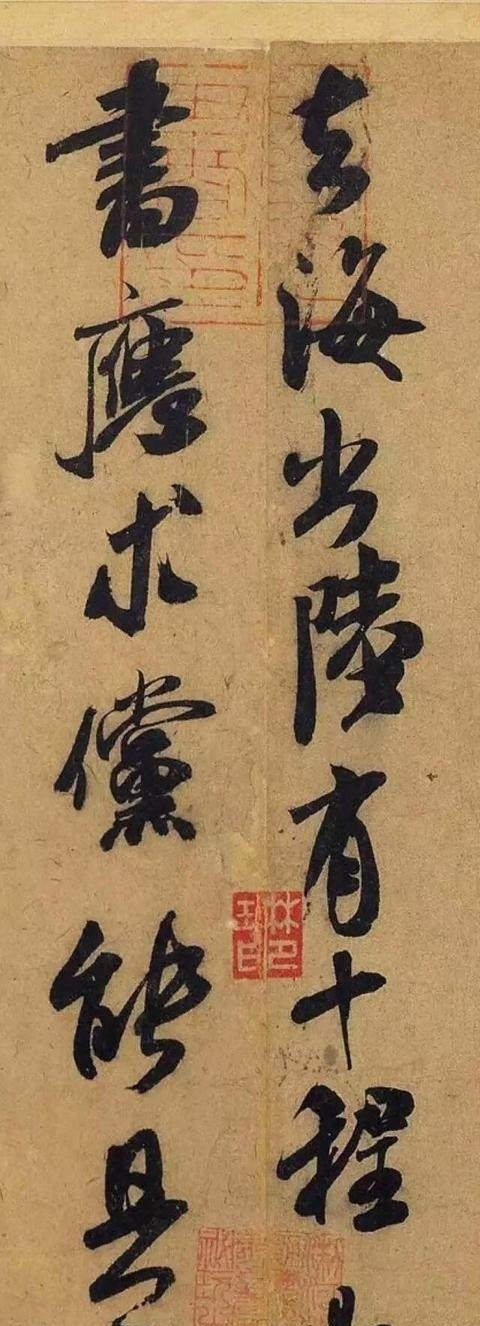 去海出陸有十程
書應求儻能具